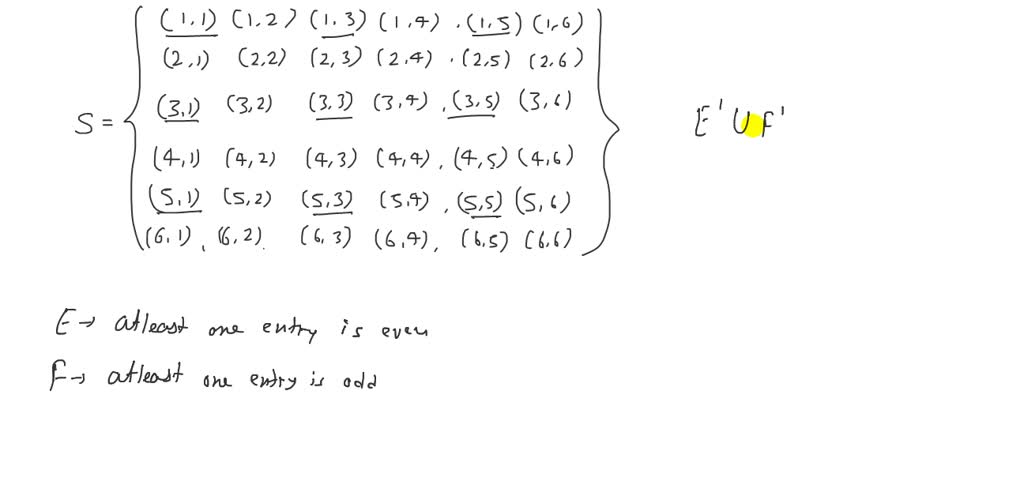 (1,1) (1,2) (1,3) (1,4) . (1,5) (1,6)
(2,1) (2,2) (2,3) (2,4) . (2,5) (2,6)
(3,1) (3,2) (3,3) (3,4) , (3,5) (3,6)
S =
E' U F'
(4,1) (4,2) (4,3) (4,4) , (4,5) (4,6)
(5,1) (5,2) (5,3) (5,4) , (5,5) (5,6)
(6,1) , (6,2) (6,3) (6,4) , (6,5) (6,6)
E → atleast one entry is even
F → atleast one entry is odd